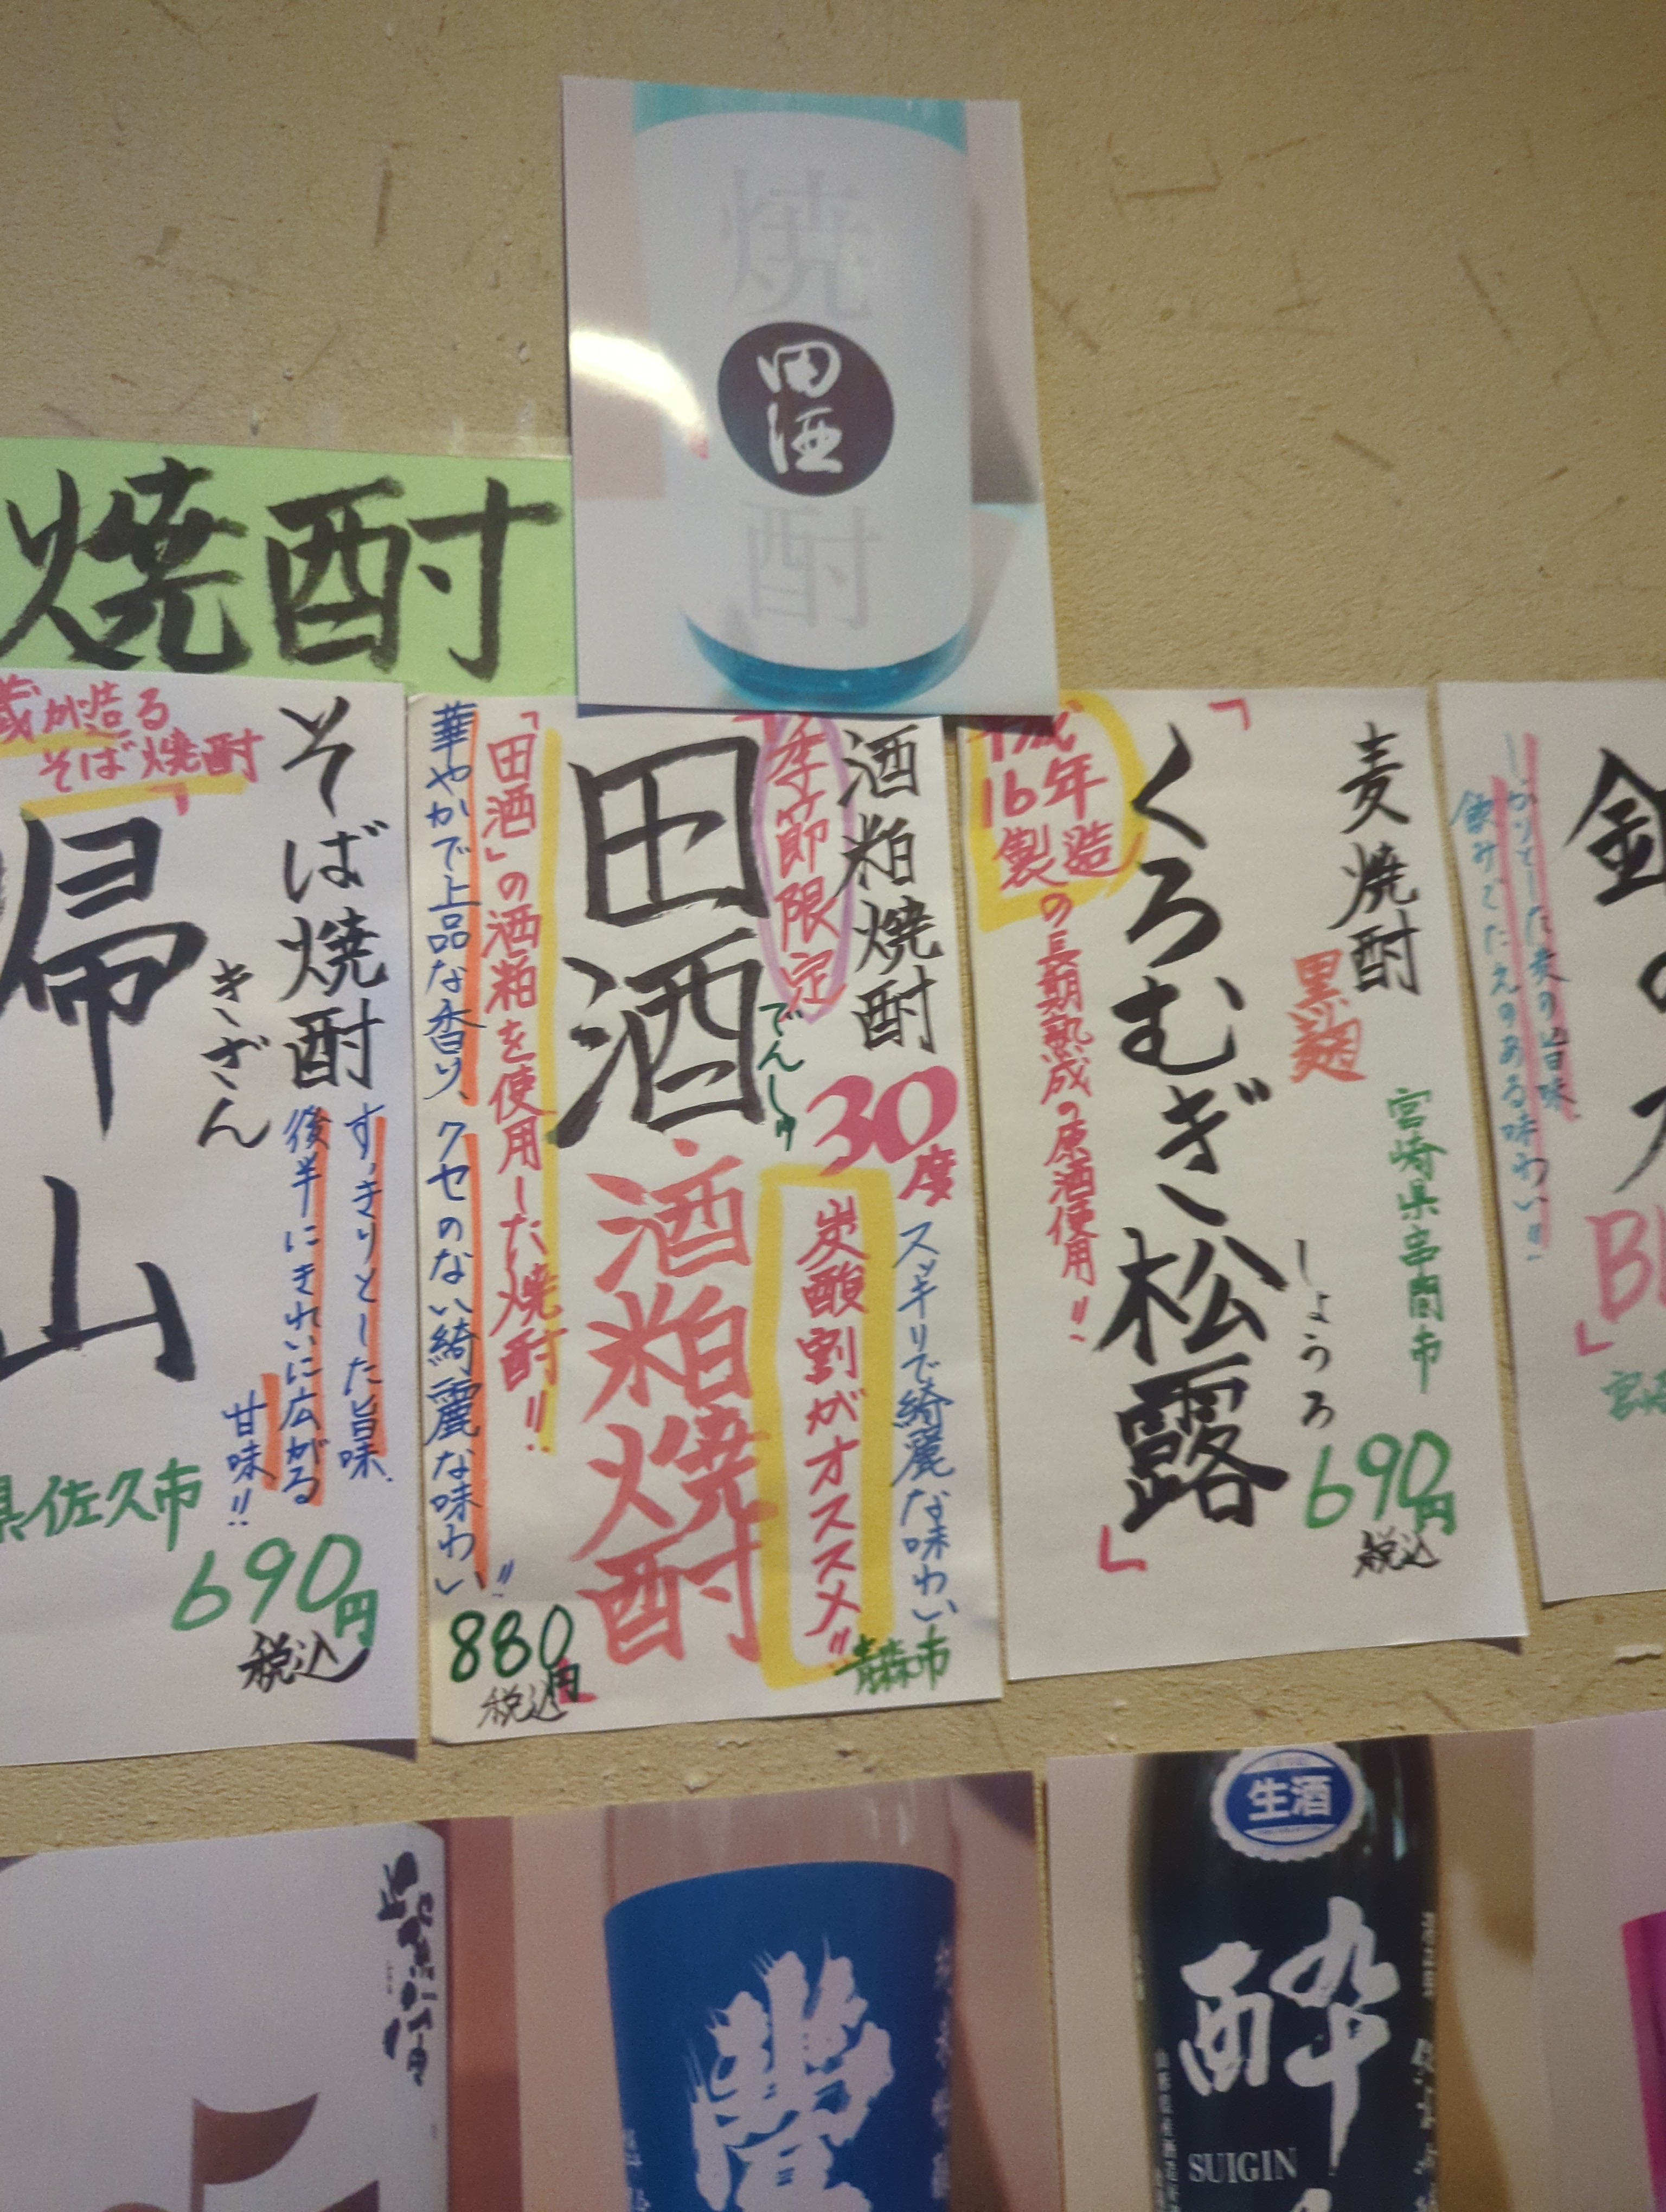 焼
田酒
酎
焼酎
蔵が造る
そば焼酎
」
そば焼酎
帰山
きざん
すっきりとした旨味、
後半にきれいに広がる
甘味!!
県佐久市
690円
税込
酒粕焼酎
季節限定
30度
田酒
でんしゅ
酒粕焼酎
スッキリで綺麗な味わい
炭酸割がオススメ!!
青森市
「田酒」の酒粕を使用した焼酎!!
華やかで上品な香り、クセのない綺麗な味わい!!
880円
税込
麦焼酎
黒麹
宮崎県串間市
「
くろむぎ松露
しょうろ
」
平成
16年
製造
の長期熟成の原酒使用!!
690円
税込
しっかりとした麦の旨味
飲みごたえのある味わい!!
」
生酒
酔
SUIGIN